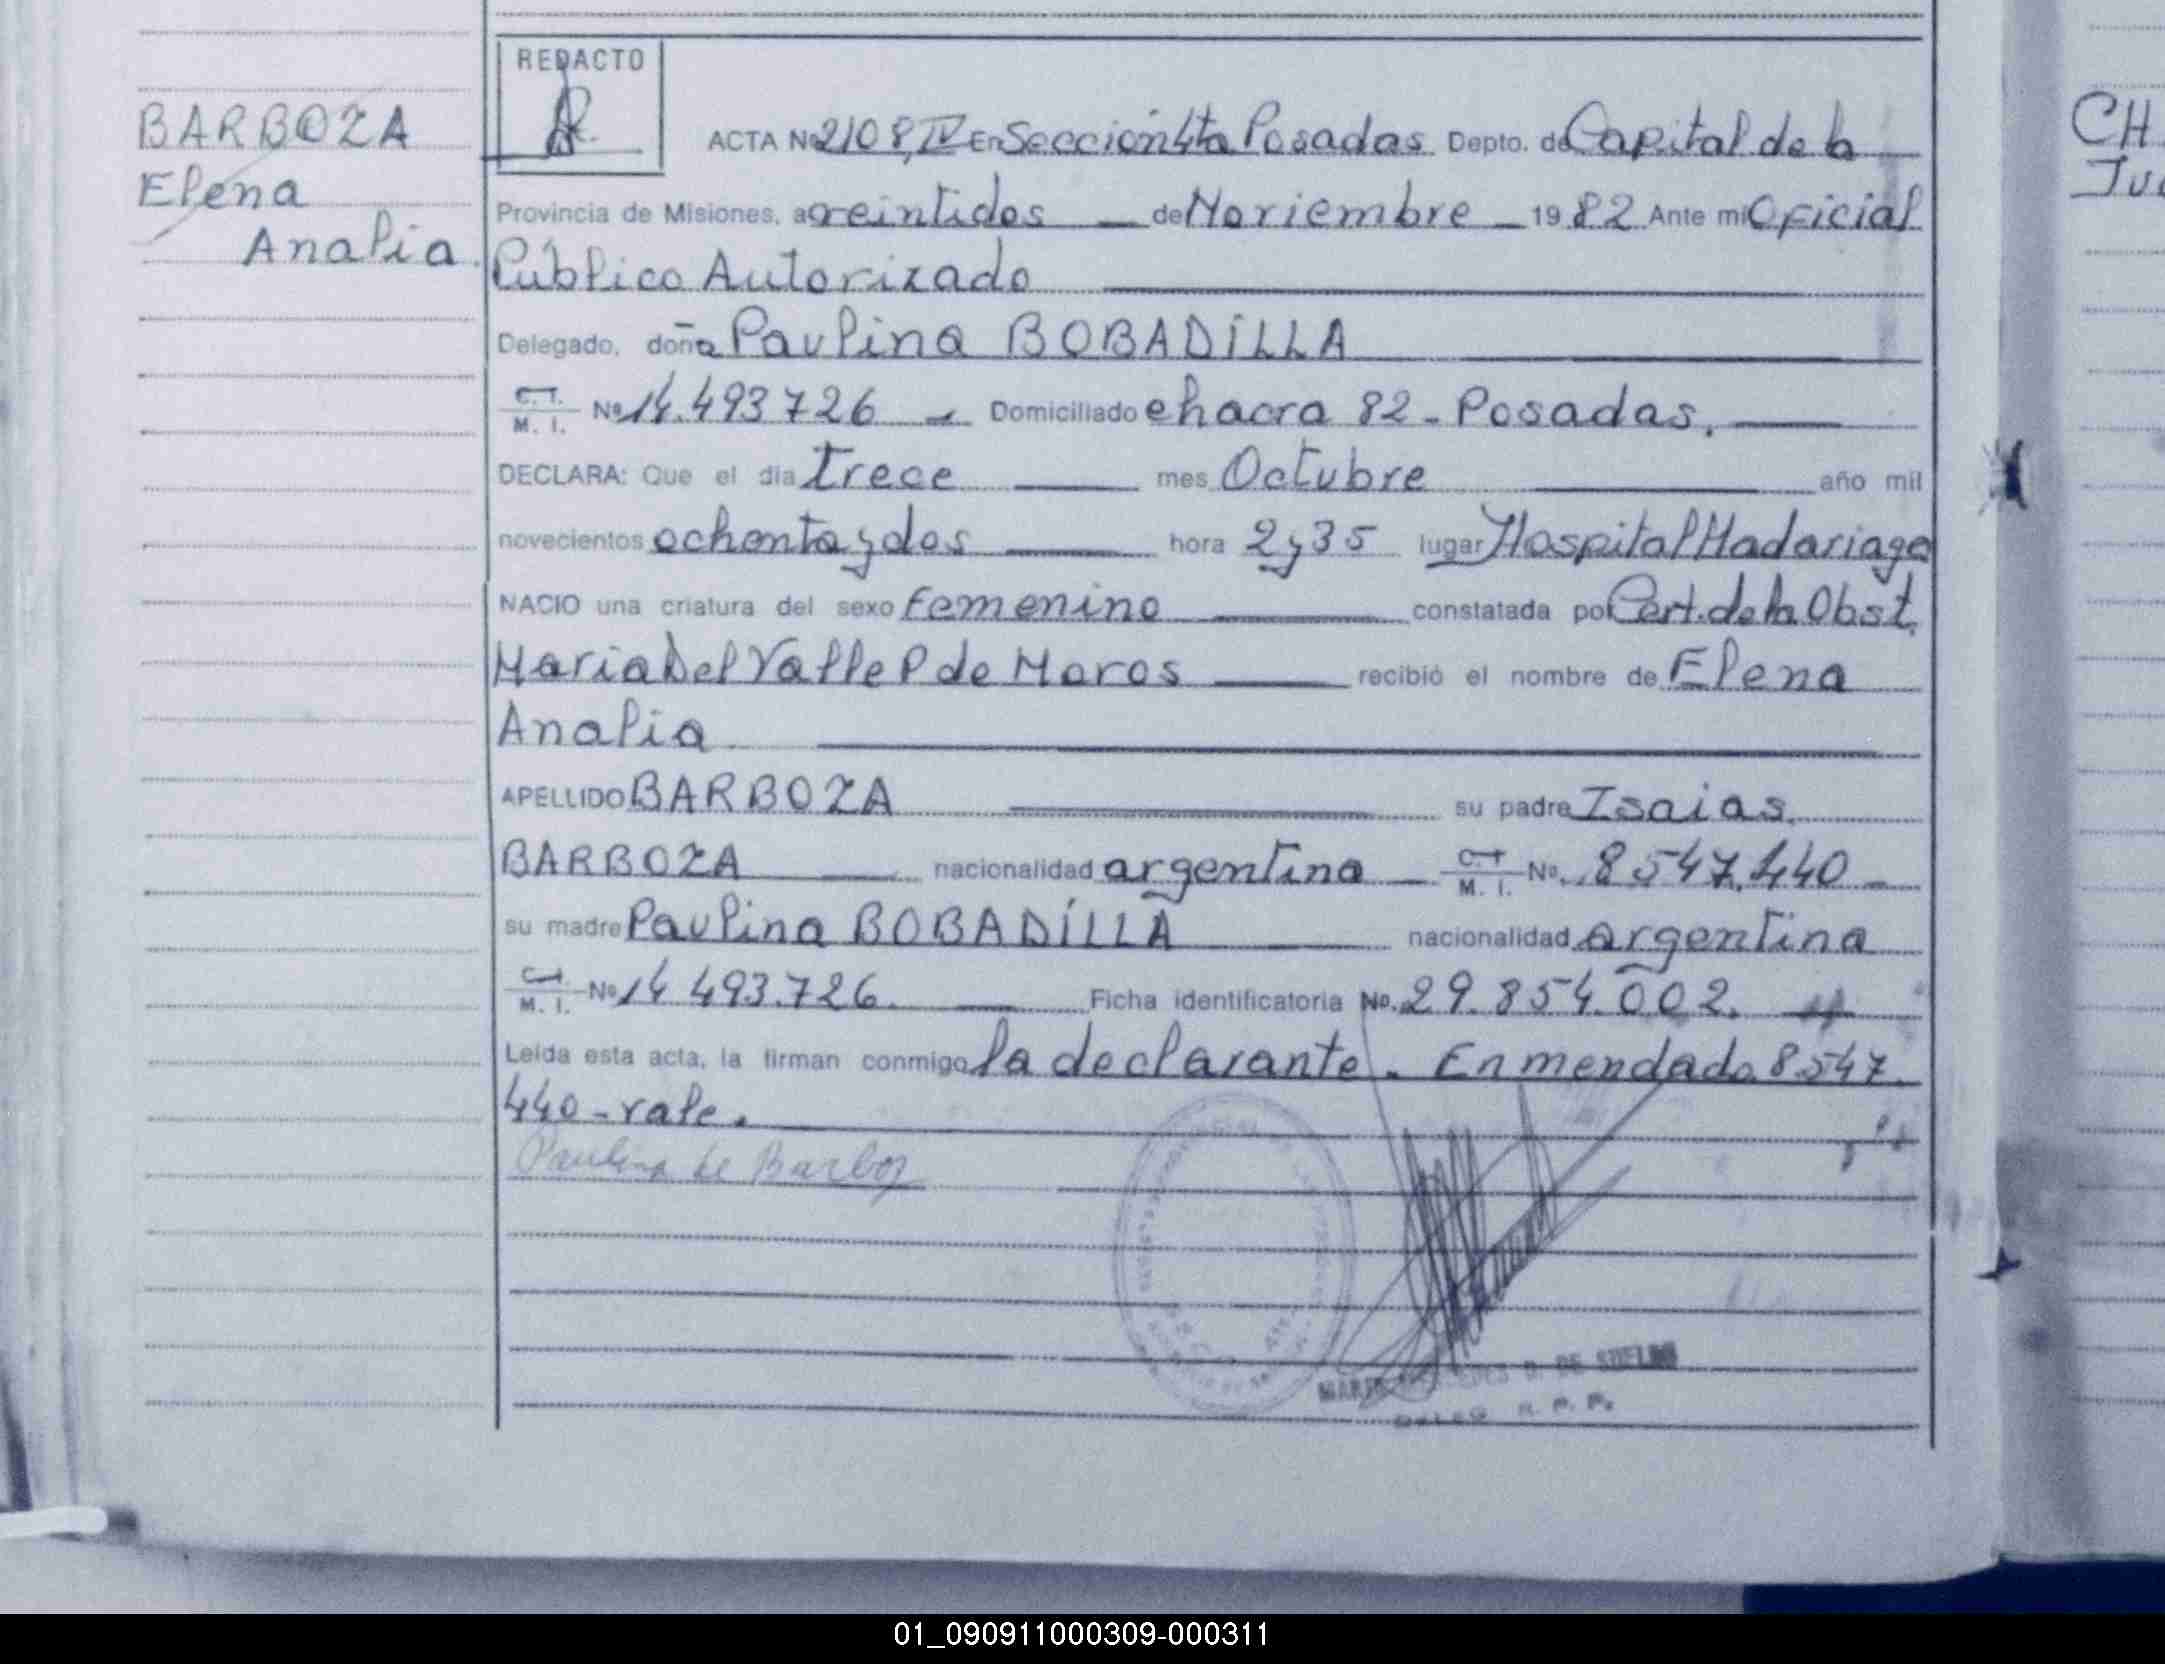 BARBOZA
Elena
Analia.
REDACTO
ACTA Nº 2108, IV En Sección 4ta Posadas Depto. de Capital de la
Provincia de Misiones, a veintidos de Noviembre 1982 Ante mi Oficial
Público Autorizado
Delegado, doña Paulina BOBADÍLLA
C. I. M. I. Nº 14.493726 Domiciliado chacra 82 - Posadas.
DECLARA: Que el dia trece mes Octubre año mil
novecientos ochenta y dos hora 2 y 35 lugar Hospital Madariaga
NACIO una criatura del sexo femenino constatada por Cert. de la Obst.
Maria Del Valle P de Moros recibió el nombre de Elena
Analia
APELLIDO BARBOZA su padre Isaias
BARBOZA nacionalidad argentina C. I. M. I. No. 8547.440
su madre Paulina BOBADÍLLA nacionalidad argentina
C. I. M. I. Nº 14 493.726. Ficha identificatoria No. 29.854.002.
Leída esta acta, la firman conmigo la declarante. Enmendado 8547.
440 - vale.
Paulina de Barboz
DE
R. P. P.
CH
Ju
01_090911000309-000311